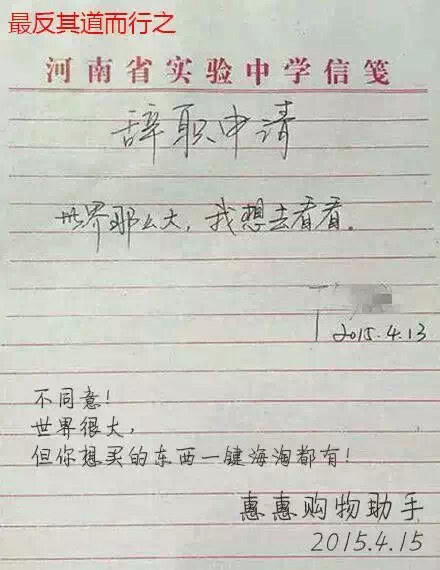 最反其道而行之
河南省实验中学信笺
辞职申请
世界那么大，我想去看看.
2015.4.13
不同意！
世界很大，
但你想买的东西一键海淘都有！
惠惠购物助手
2015.4.15